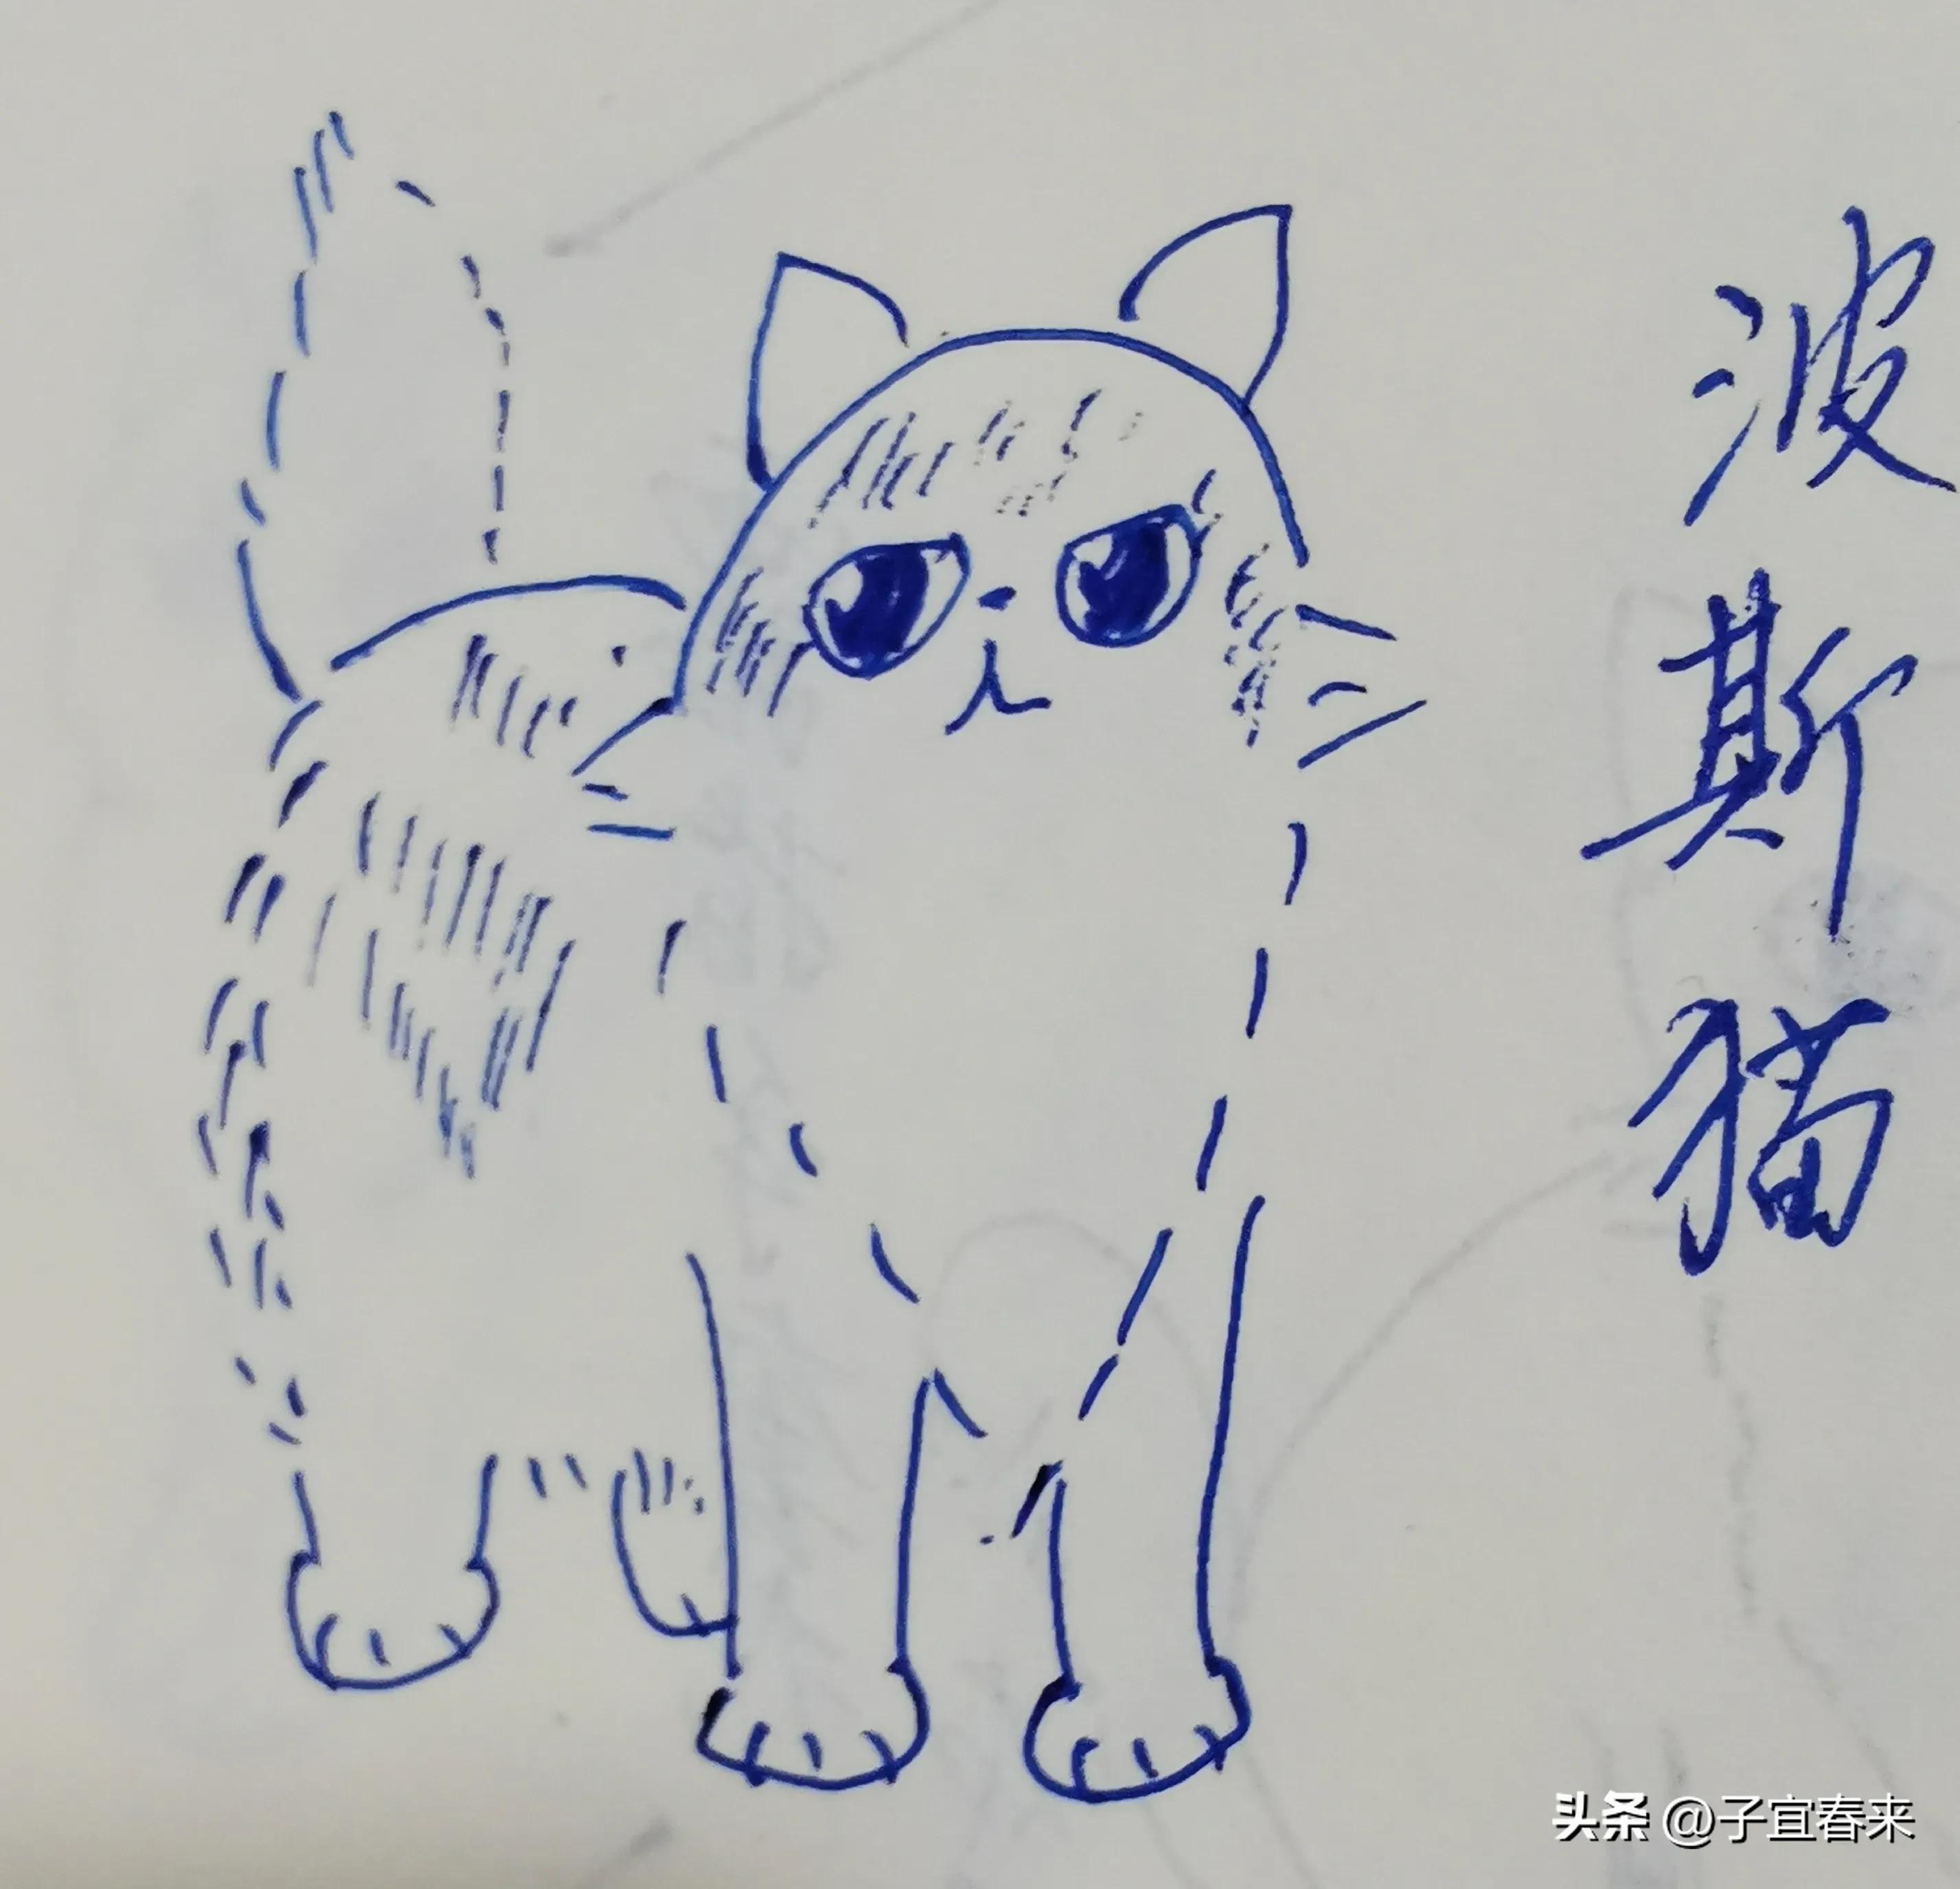 波斯猫
头条 @子宜春来